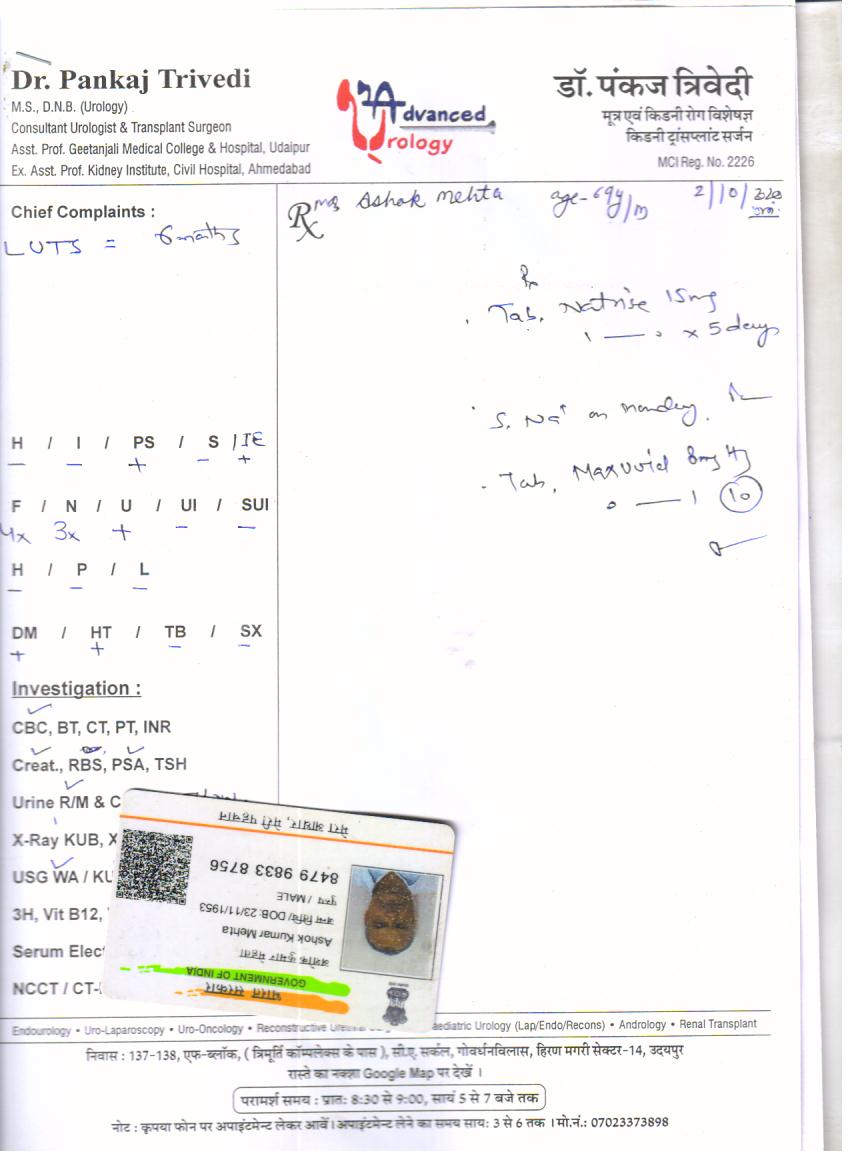 Dr. Pankaj Trivedi
M.S., D.N.B. (Urology)
Consultant Urologist & Transplant Surgeon
Asst. Prof. Geetanjali Medical College & Hospital, Udaipur
Ex. Asst. Prof. Kidney Institute, Civil Hospital, Ahmedabad
Advanced
Urology
डॉ. पंकज त्रिवेदी
मूत्र एवं किडनी रोग विशेषज्ञ
किडनी ट्रांसप्लांट सर्जन
MCI Reg. No. 2226
Chief Complaints :
LUTS = 6 months
Rx Ashok Mehta age-69y/m 2/10/
Rx
Tab. Natrise 15mg
1 — 0 x 5 days
S. Na+ on Monday.
Tab. Maxuvid 8mg
0 — 1 10
H / I / PS / S / IE
– – + – +
F / N / U / UI / SUI
4x 3x + – –
H / P / L
– – –
DM / HT / TB / SX
+ + – –
Investigation :
CBC, BT, CT, PT, INR
Creat., RBS, PSA, TSH
Urine R/M & C
X-Ray KUB, X
USG WA / KU
3H, Vit B12,
Serum Elec
NCCT / CT-
भारत सरकार
GOVERNMENT OF INDIA
अशोक कुमार मेहता
Ashok Kumar Mehta
जन्म तिथि/ DOB: 23/11/1953
पुरुष / MALE
8479 9833 8756
मेरा आधार, मेरी पहचान
Endourology • Uro-Laparoscopy • Uro-Oncology • Reconstructive aediatric Urology (Lap/Endo/Recons) • Andrology • Renal Transplant
निवास : 137-138, एफ-ब्लॉक, ( त्रिमूर्ति कॉम्पलेक्स के पास ), सी.ए. सर्कल, गोवर्धनविलास, हिरण मगरी सेक्टर-14, उदयपुर
रास्ते का नक्शा Google Map पर देखें ।
परामर्श समय : प्रातः 8:30 से 9:00, सायं 5 से 7 बजे तक
नोट : कृपया फोन पर अपाइंटमेन्ट लेकर आवें । अपाइंटमेन्ट लेने का समय सायः 3 से 6 तक । मो.नं.: 07023373898